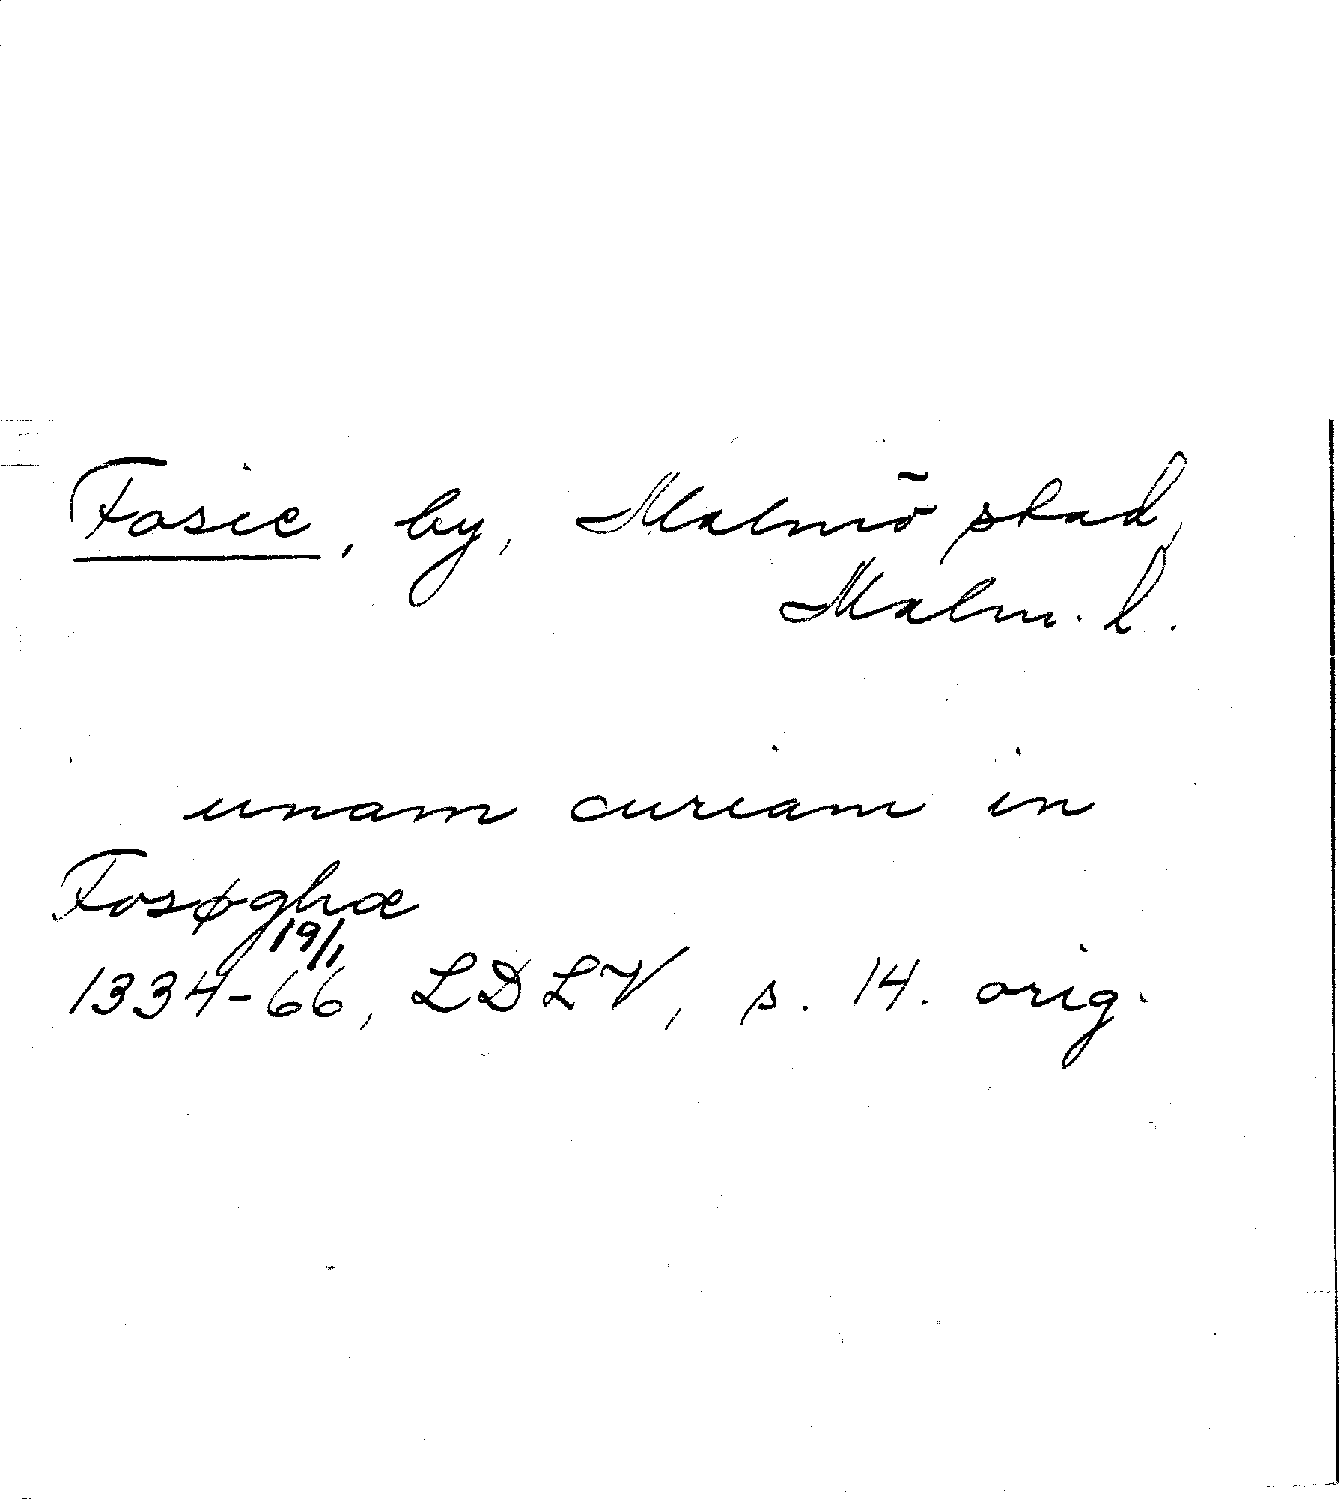 Fosie, by, Malmö stad,
Malm. l.
unam curiam in
Fosøghæ
19/1
1334-66, LDLV, s. 14. orig.